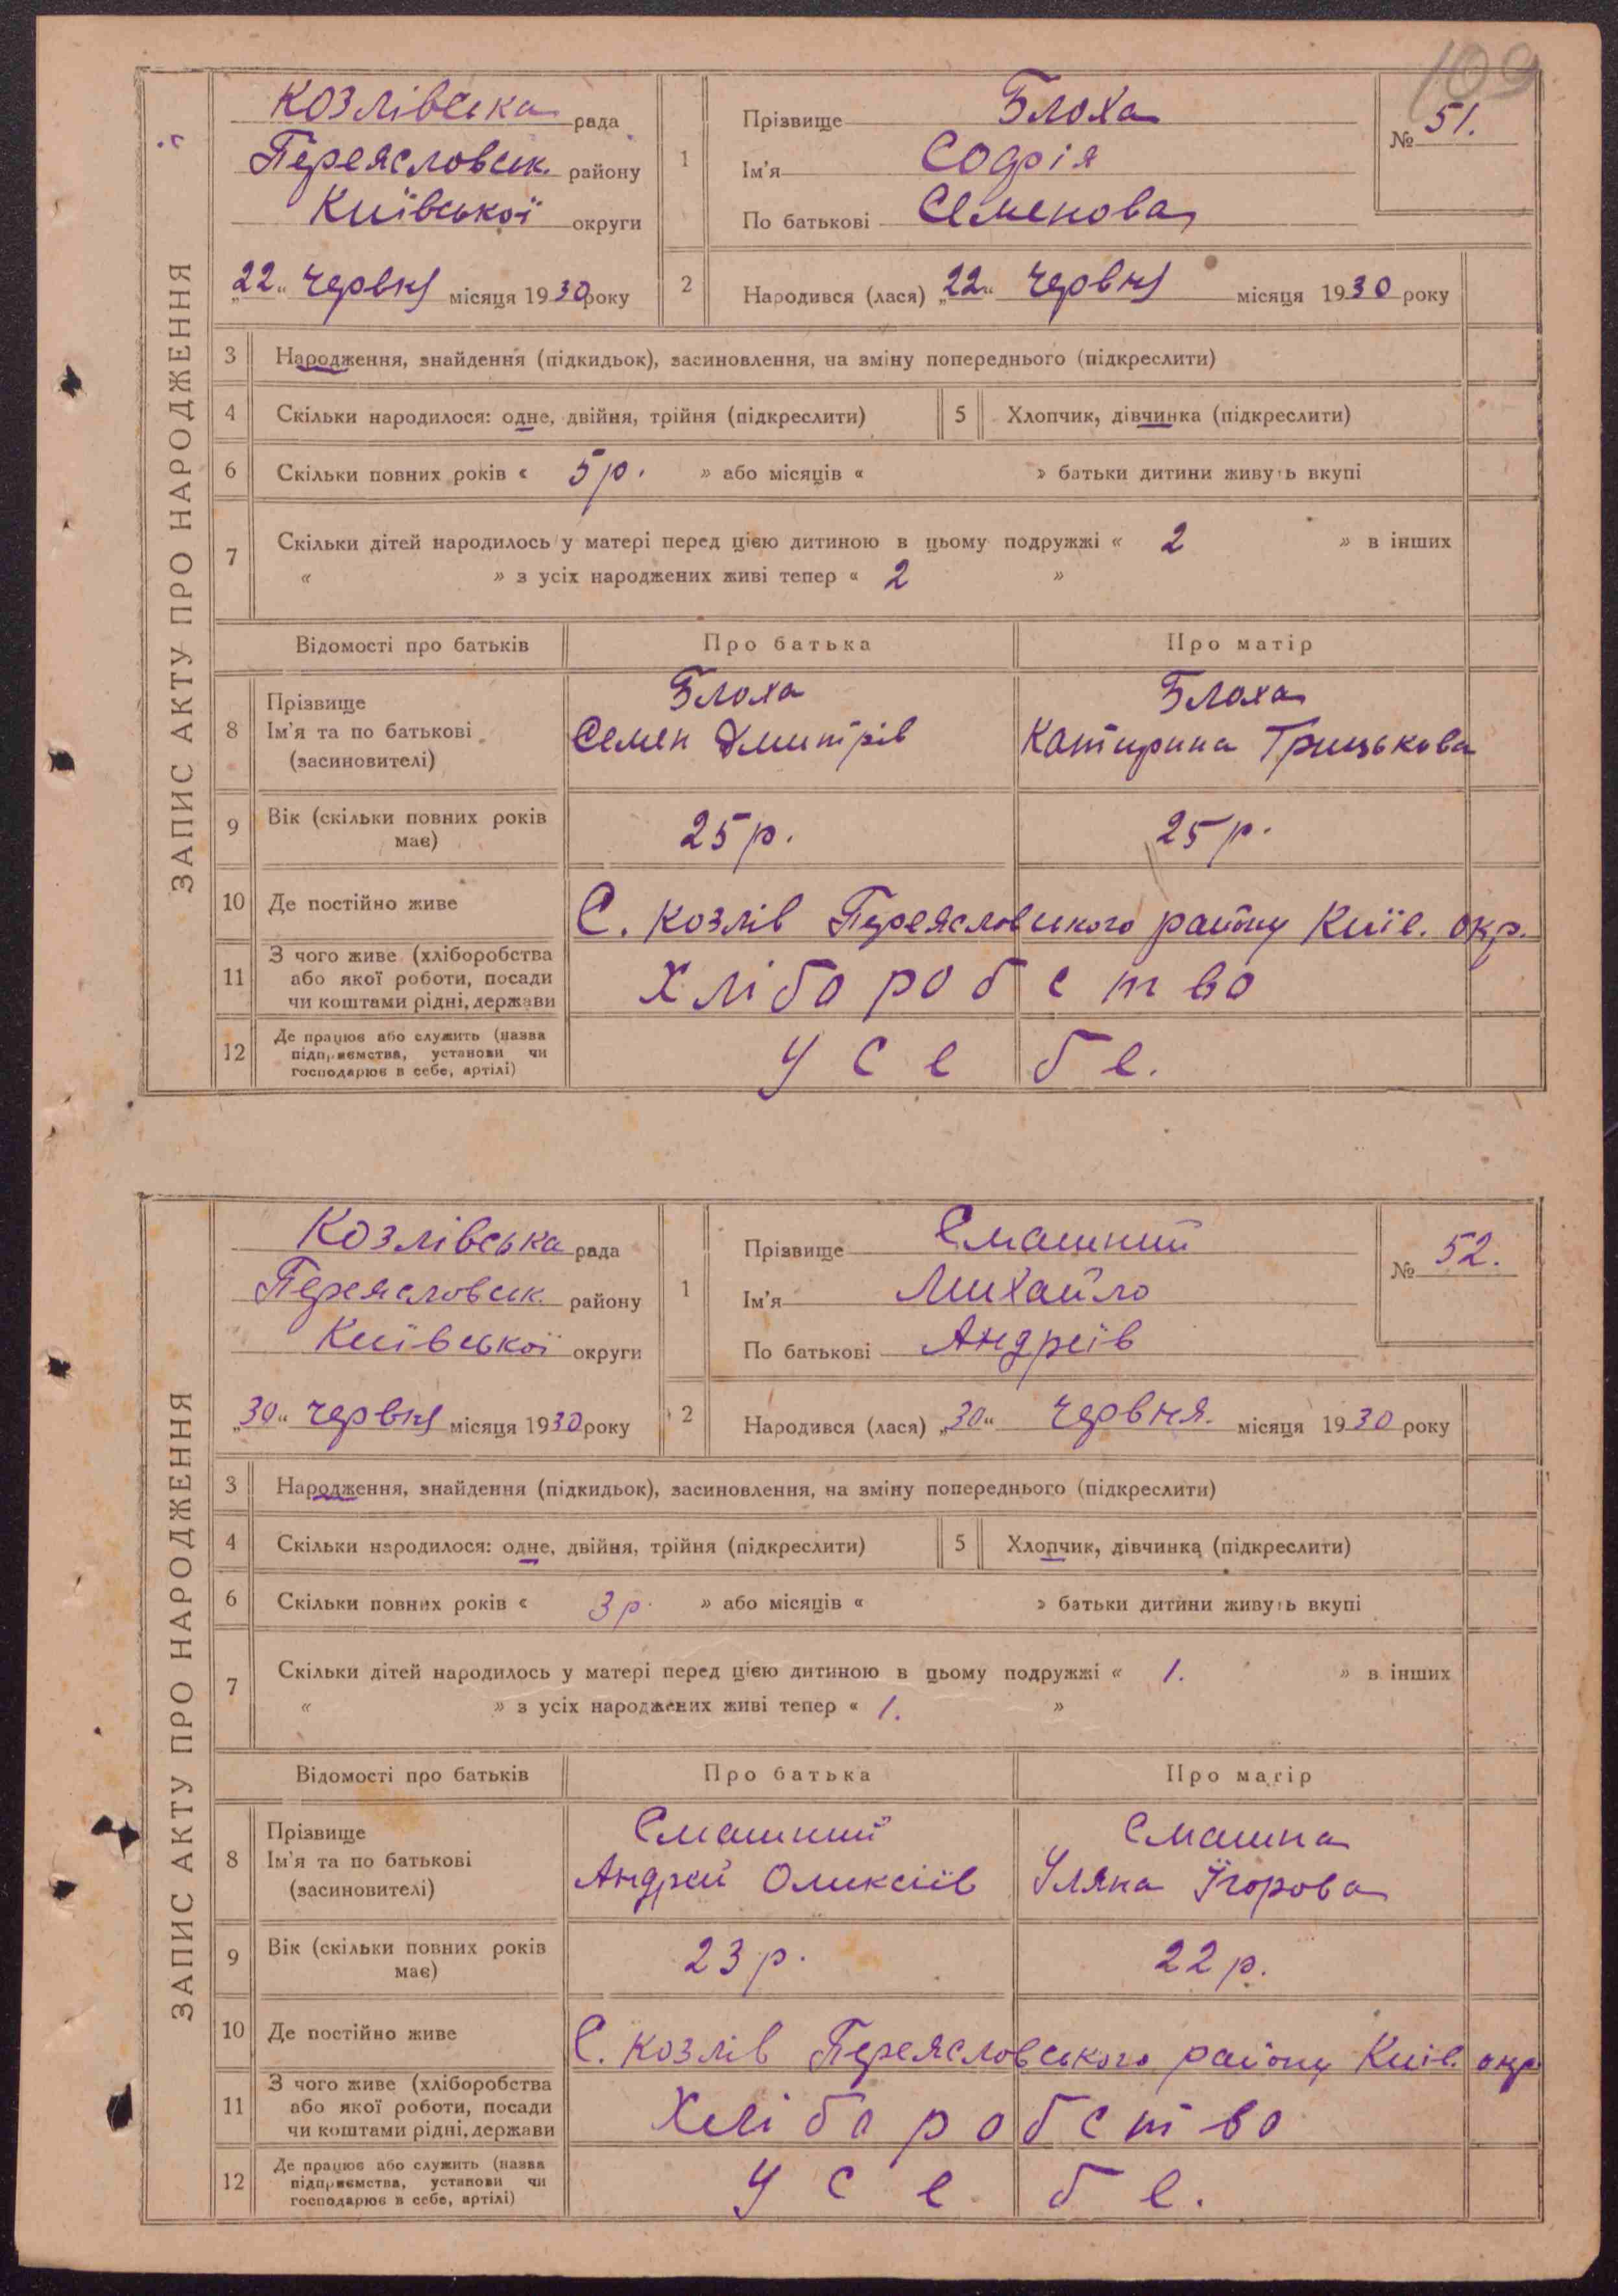 109
ЗАПИС АКТУ ПРО НАРОДЖЕННЯ
Козлівська рада
Переясловськ. району
Київської округи
„22“ червня місяця 1930 року
1
Прізвище Блоха
Ім'я Софія
По батькові Семенова
№ 51.
2
Народився (лася) „22“ червня місяця 1930 року
3 Народження, знайдення (підкидьок), засиновлення, на зміну попереднього (підкреслити)
4 Скільки народилося: одне, двійня, трійня (підкреслити) 5 Хлопчик, дівчинка (підкреслити)
6 Скільки повних років « 5 р. » або місяців « » батьки дитини живуть вкупі
7 Скільки дітей народилось у матері перед цією дитиною в цьому подружжі « 2 » в інших
« » з усіх народжених живі тепер « 2 »
Відомості про батьків Про батька Про матір
8 Прізвище Ім'я та по батькові (засновителі)
Блоха Семен Дмитрів
Блоха Катирина Грицькова
9 Вік (скільки повних років має) 25 р. 25 р.
10 Де постійно живе С. Козлів Переясловського району Київ. окр.
11 З чого живе (хліборобства або якої роботи, посади чи коштами рідні, держави Хліборобство
12 Де працює або служить (назва підприємства, установи чи господарює в себе, артілі) У себе.
ЗАПИС АКТУ ПРО НАРОДЖЕННЯ
Козлівська рада
Переясловськ. району
Київської округи
„30“ червня місяця 1930 року
1
Прізвище Смашний
Ім'я Михайло
По батькові Андреїв
№ 52.
2
Народився (лася) „30“ червня. місяця 1930 року
3 Народження, знайдення (підкидьок), засиновлення, на зміну попереднього (підкреслити)
4 Скільки народилося: одне, двійня, трійня (підкреслити) 5 Хлопчик, дівчинка (підкреслити)
6 Скільки повних років « 3 р. » або місяців « » батьки дитини живуть вкупі
7 Скільки дітей народилось у матері перед цією дитиною в цьому подружжі « 1. » в інших
« » з усіх народжених живі тепер « 1. »
Відомості про батьків Про батька Про матір
8 Прізвище Ім'я та по батькові (засиновителі)
Смашний Андрей Оликсіїв
Смашна Уляна Їгорова
9 Вік (скільки повних років має) 23 р. 22 р.
10 Де постійно живе С. Козлів Переясловського району Київ. окр
11 З чого живе (хліборобства або якої роботи, посади чи коштами рідні, держави Хліборобство
12 Де працює або служить (назва підприємства, установи чи господарює в себе, артілі) У себе.